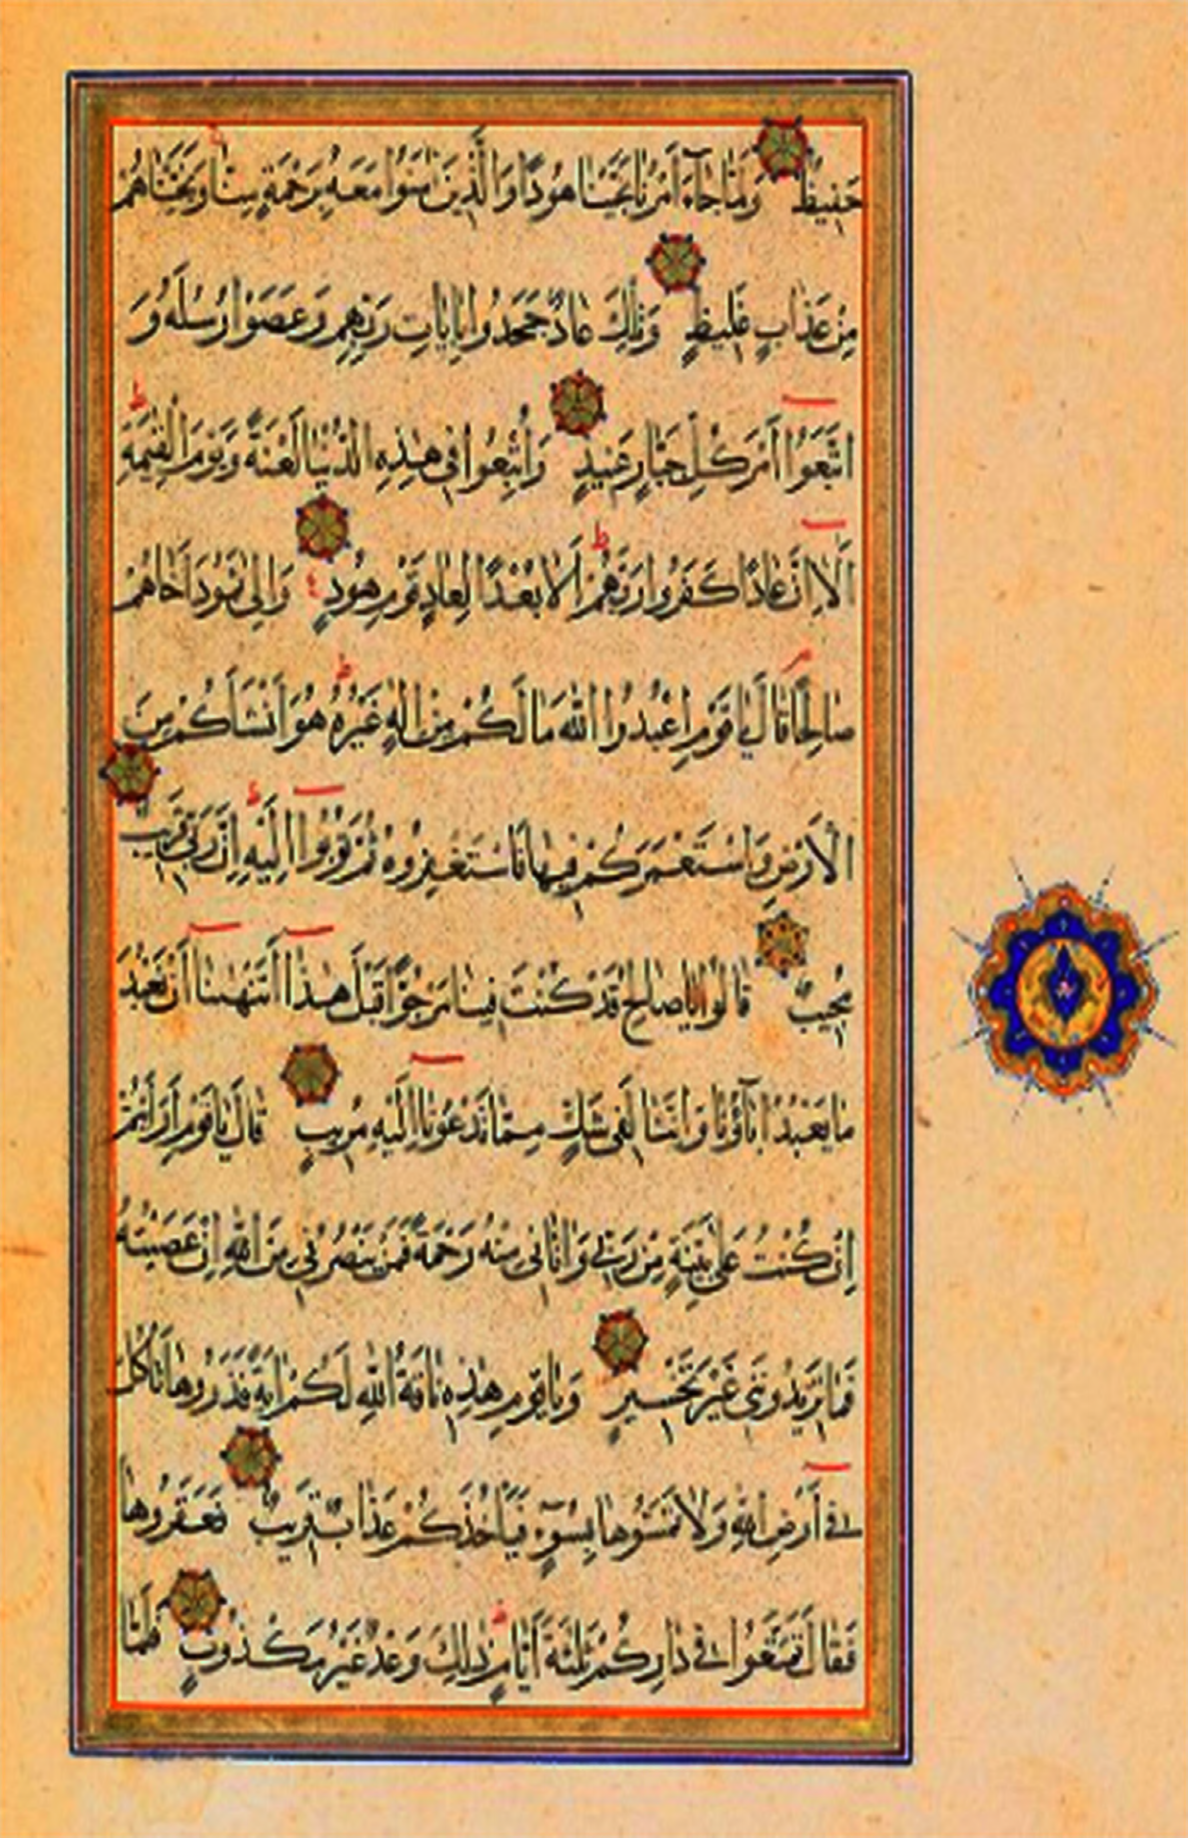 حَفِيظٌ وَلَمَّا جَاءَ أَمْرُنَا نَجَّيْنَا هُودًا وَالَّذِينَ اٰمَنُوا مَعَهُ بِرَحْمَةٍ مِنَّا وَنَجَّيْنَاهُمْ
مِنْ عَذَابٍ غَلِيظٍ وَتِلْكَ عَادٌ جَحَدُوا بِاٰيَاتِ رَبِّهِمْ وَعَصَوْا رُسُلَهُ وَ
اتَّبَعُوا أَمْرَ كُلِّ جَبَّارٍ عَنِيدٍ وَأُتْبِعُوا فِي هٰذِهِ الدُّنْيَا لَعْنَةً وَيَوْمَ الْقِيٰمَةِ
أَلَا إِنَّ عَادًا كَفَرُوا رَبَّهُمْ أَلَا بُعْدًا لِعَادٍ قَوْمِ هُودٍ وَإِلَى ثَمُودَ أَخَاهُمْ
صَالِحًا قَالَ يَا قَوْمِ اعْبُدُوا اللّٰهَ مَا لَكُمْ مِنْ إِلٰهٍ غَيْرُهُ هُوَ أَنْشَأَكُمْ مِنَ
الْأَرْضِ وَاسْتَعْمَرَكُمْ فِيهَا فَاسْتَغْفِرُوهُ ثُمَّ تُوبُوا إِلَيْهِ إِنَّ رَبِّي قَرِيبٌ
مُجِيبٌ قَالُوا يَا صَالِحُ قَدْ كُنْتَ فِينَا مَرْجُوًّا قَبْلَ هٰذَا أَتَنْهٰىنَا أَنْ نَعْبُدَ
مَا يَعْبُدُ اٰبَاؤُنَا وَإِنَّنَا لَفِي شَكٍّ مِمَّا تَدْعُونَا إِلَيْهِ مُرِيبٍ قَالَ يَا قَوْمِ أَرَأَيْتُمْ
إِنْ كُنْتُ عَلَى بَيِّنَةٍ مِنْ رَبِّي وَاٰتَانِي مِنْهُ رَحْمَةً فَمَنْ يَنْصُرُنِي مِنَ اللّٰهِ إِنْ عَصَيْتُهُ
فَمَا تَزِيدُونَنِي غَيْرَ تَخْسِيرٍ وَيَا قَوْمِ هٰذِهِ نَاقَةُ اللّٰهِ لَكُمْ اٰيَةً فَذَرُوهَا تَأْكُلْ
فِي أَرْضِ اللّٰهِ وَلَا تَمَسُّوهَا بِسُوءٍ فَيَأْخُذَكُمْ عَذَابٌ قَرِيبٌ فَعَقَرُوهَا
فَقَالَ تَمَتَّعُوا فِي دَارِكُمْ ثَلٰثَةَ أَيَّامٍ ذٰلِكَ وَعْدٌ غَيْرُ مَكْذُوبٍ فَلَمَّا